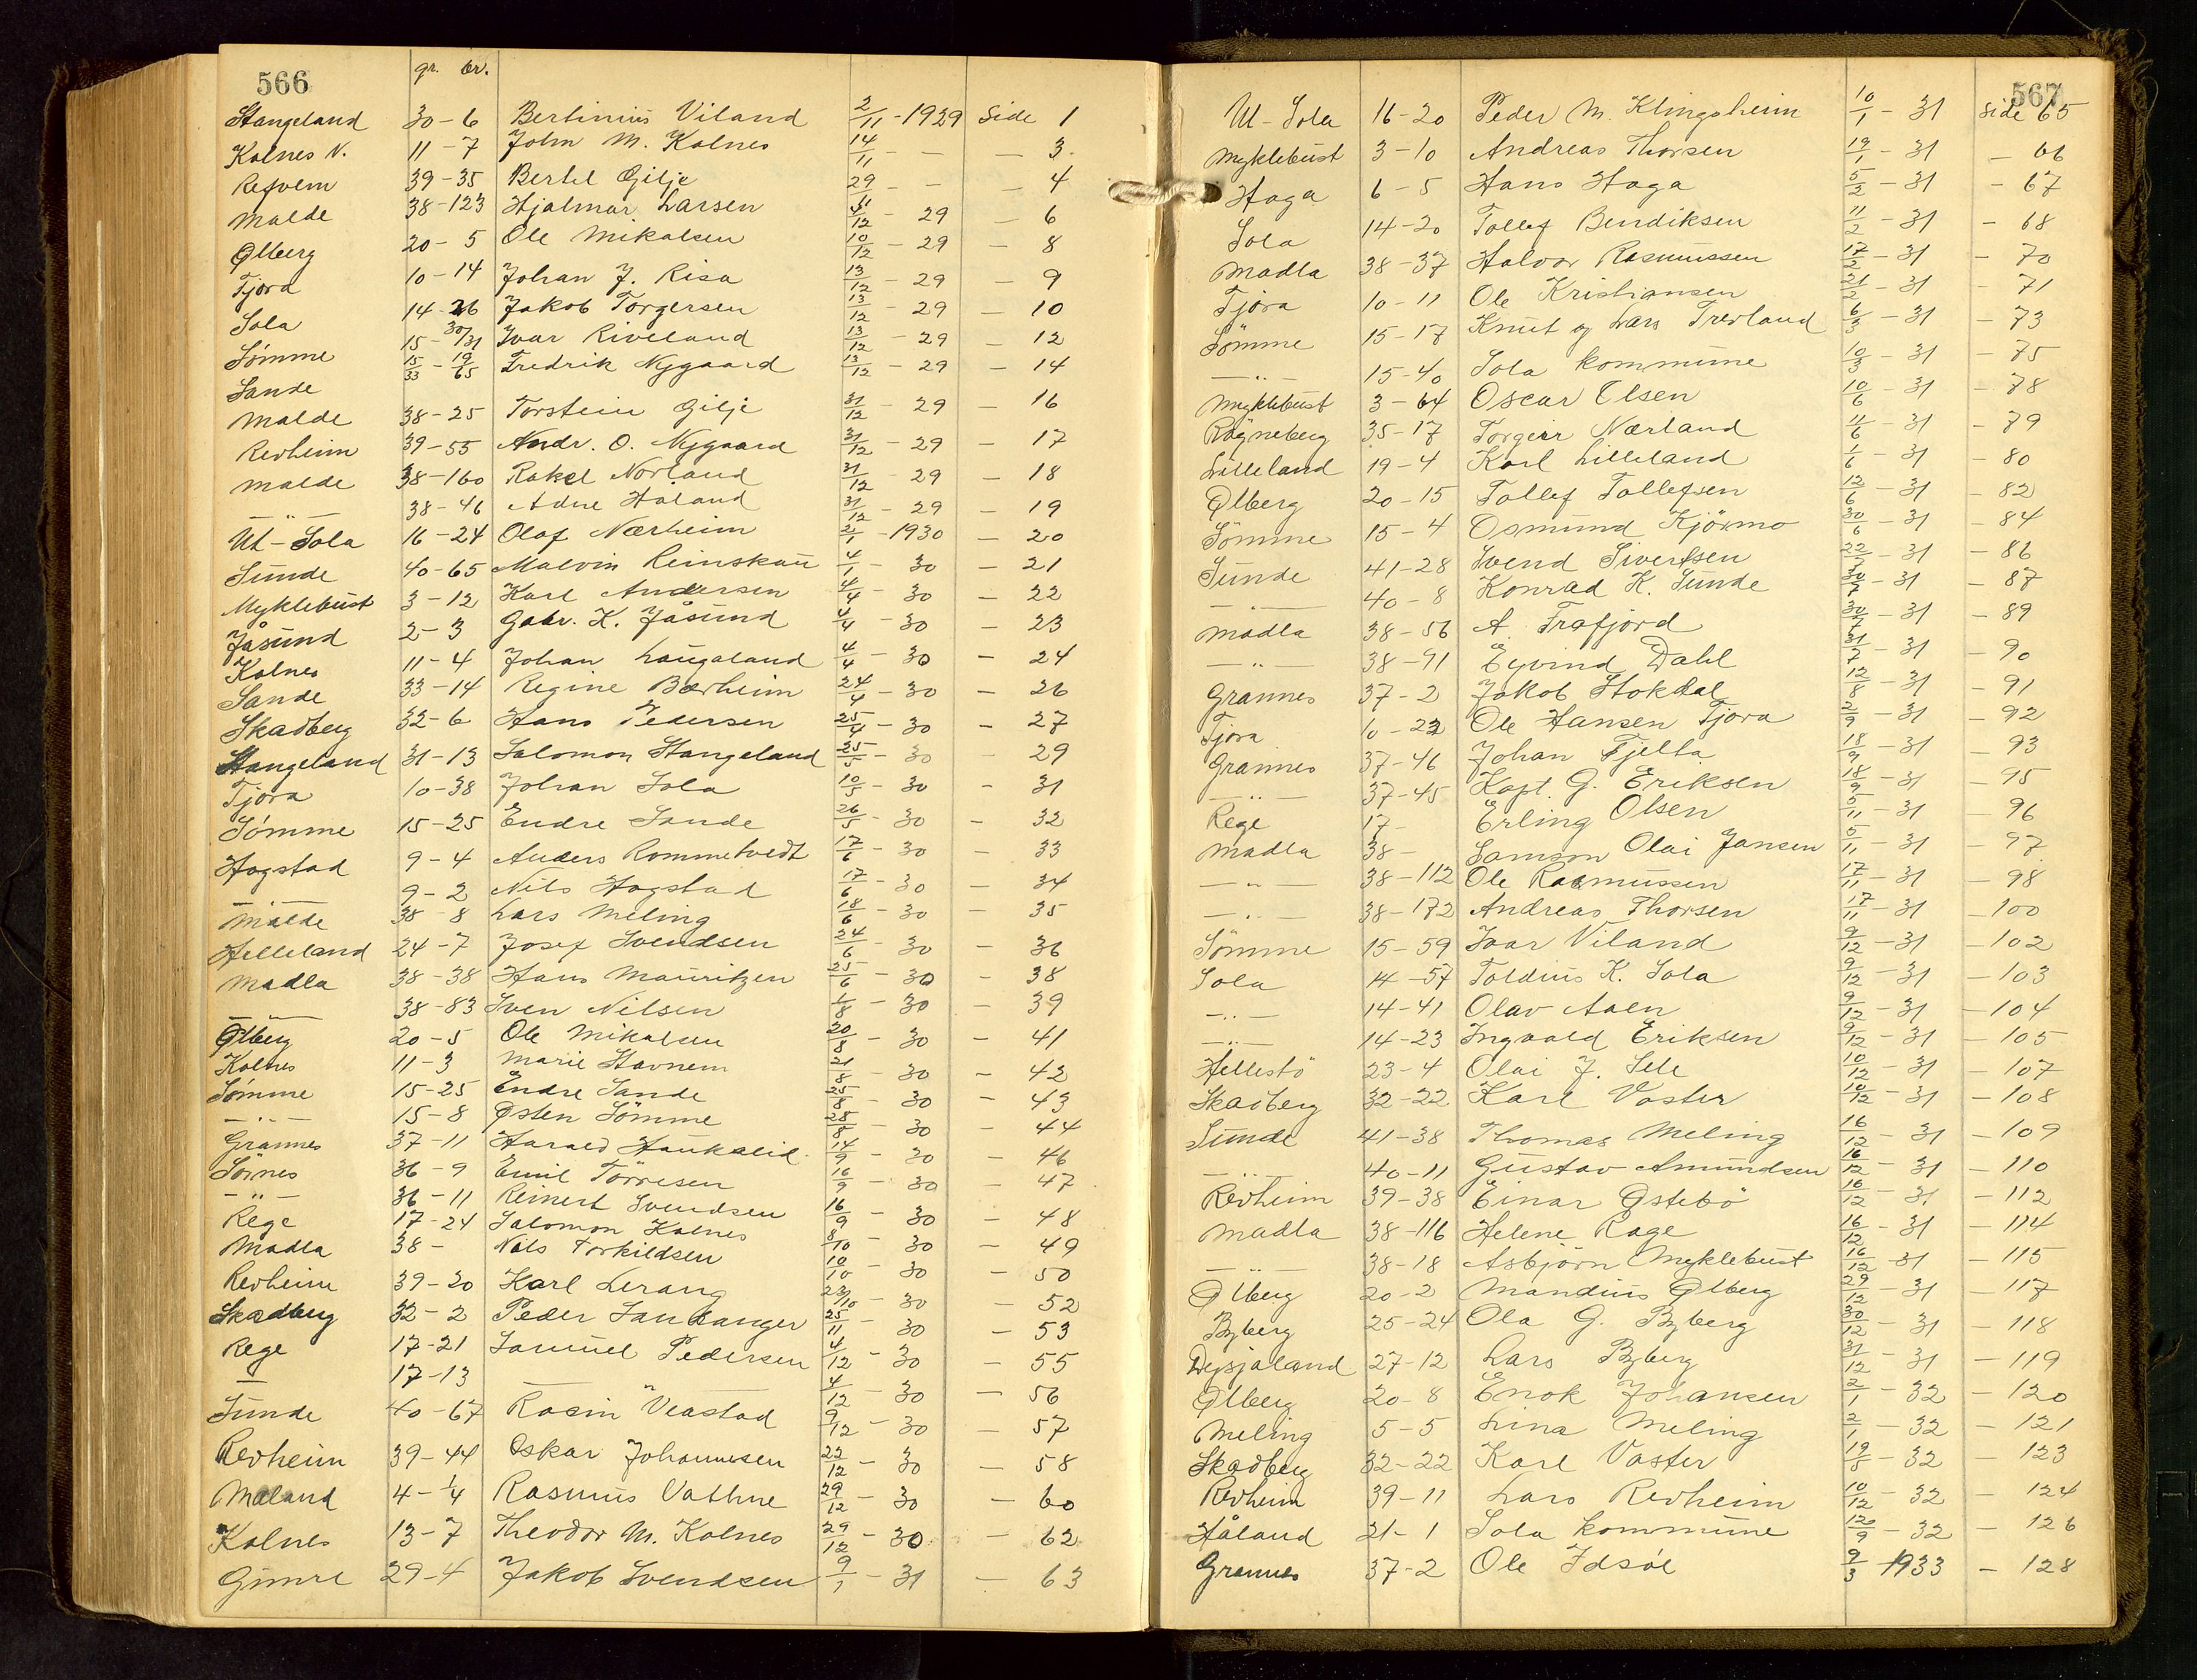 566
gr. br.
Stangeland 30-6 Bertinius Viland 2/11-1929 Side 1
Kolnes N. 11-7 John M. Kolnes 14/11 - - - 3
39-35 Bertel Gilje 29/11 - - - 4
Malde 38-123 Hjalmar Larsen 12 - 29 - 6
Ølberg 20-5 Ole Mikalsen 10/12 - 29 - 8
Tjora 10-14 Johan J. Risa 13/12 - 29 - 9
Sola 14-26 Jakob Torgersen 13/12 29 - 10
Sømme 15-30/31 Ivar Riveland 13/12 - 29 - 12
Sande 15/33 - 19/65 Fredrik Nygaard 13/12 - 29 - 14
Malde 38-25 Torstein Gilje 31/12 - 29 - 16
Revheim 39-55 Andr. O. Nygaard 31/12 - 29 - 17
Malde 38-160 Rakel Norland 31/12 29 - 18
- " - 38-46 Adne Haland 31/12 - 29 - 19
Ut-Sola 16-24 Olaf Nærheim 2/1 - 1930 - 20
Sunde 40-65 Malvin Reinskau 4/1 - 30 - 21
Myklebust 3-12 Karl Andersen 4/4 - 30 - 22
Jåsund 2-3 Gabr. K. Jåsund 4/4 - 30 - 23
Kolnes 11-4 Johan Laugaland 4/4 - 30 - 24
Sande 33-14 Regine Bærheim 24/4 - 30 - 26
Skadberg 32-6 Hans Pedersen 25/4 - 30 - 27
Stangeland 31-13 Salomon Stangeland 25/5 - 30 - 29
Tjora 10-38 Johan Sola 10/5 - 30 - 31
Sømme 15-25 Endre Sande 26/5 - 30 - 32
Hogstad 9-4 Anders Rommetvedt 17/6 - 30 - 33
- " - 9-2 Nils Hogstad 17/6 - 30 - 34
Malde 38-8 Lars Meling 18/6 - 30 - 35
Helleland 24-7 Josef Svendsen 24/6 - 30 - 36
Madla 38-38 Hans Mauritzen 25/6 - 30 - 38
- " - 38-83 Sven Nilsen 1/8 - 30 - 39
Ølberg 20-5 Ole Mikalsen 20/8 - 30 - 41
Kolnes 11-3 Marie Stavnem 21/8 - 30 - 42
Sømme 15-25 Endre Sande 25/8 - 30 - 43
- " - 15-8 Østen Sömme 28/8 - 30 - 44
Grannes 37-11 Harald Haukalid 14/9 - 30 - 46
Sörnes 36-9 Emil Törresen 16/9 - 30 - 47
- " - 36-11 Reinert Svendsen 16/9 - 30 - 48
Rege 17-24 Salomon Kolnes 8/10 - 30 - 49
Madla 38- Nils Torkildsen 10/10 - 30 - 50
Revheim 39-20 Karl Lerang 23/10 - 30 - 52
Skadberg 32-2 Peder Sandanger 25/11 - 30 - 53
Rege 17-21 Samuel Pedersen 4/12 - 30 - 55
- 17-13 - " - 4/12 - 30 - 56
Sunde 40-67 Rasin Veastad 9/12 - 30 - 57
Revheim 39-44 Oskar Johannesen 22/12 - 30 - 58
Meland 4-1/4 Rasmus Vathne 29/12 - 30 - 60
Kolnes 13-7 Theodor M. Kolnes 29/12 - 30 - 62
Gimre 29-4 Jakob Svendsen 9/1 - 31 - 63
567
Ut-Sola 16-20 Peder M. Klingsheim 10/1 - 31 Side 65
Myklebust 3-10 Andreas Thorsen 19/1 - 31 - 66
Haga 6-5 Hans Haga 5/2 - 31 - 67
Sola 14-20 Tollef Bendiksen 11/2 - 31 - 68
Madla 38-37 Halvor Rasmussen 17/2 - 31 - 70
Tjora 10-11 Ole Kristiansen 21/2 - 31 - 71
Sömme 15-17 Knut og Lars Treeland 6/3 - 31 - 73
- " - 15-40 Sola kommune 10/3 - 31 - 75
Myklebust 3-64 Oscar Olsen 10/6 - 31 - 78
Rögneberg 35-17 Torgeir Nærland 11/6 - 31 - 79
Lilleland 19-4 Karl Lilleland 1/6 - 31 - 80
Ølberg 20-15 Tollef Tollefsen 12/6 - 31 - 82
Sömme 15-4 Osmund Kjörmo 30/6 - 31 - 84
Sunde 41-28 Svend Sivertsen 22/7 - 31 - 86
- " - 40-8 Konrad K. Sunde 30/7 - 31 - 87
Madla 38-56 A. Frafjord 30/7 - 31 - 89
- " - 38-91 Eyvind Dahl 31/7 - 31 - 90
Grannes 37-2 Jakob Stokdal 12/8 - 31 - 91
Tjora 10-22 Ole Hansen Tjora 2/9 - 31 - 92
Grannes 37-46 Johan Fjelta 18/9 - 31 - 93
- " - 37-45 Kapt. G. Eriksen 18/9 - 31 - 95
Rege 17- Erling Olsen 5/11 - 31 - 96
Madla 38- Samson Olai Jansen 5/11 - 31 - 97
- " - 38-112 Ole Rasmussen 17/11 - 31 - 98
- " - 38-172 Andreas Thorsen 17/11 - 31 - 100
Sömme 15-59 Ivar Viland 9/12 - 31 - 102
Sola 14-57 Toldius K. Sola 9/12 - 31 - 103
- " - 14-41 Olav Aaen 9/12 - 31 - 104
- " - 14-23 Ingvald Eriksen 9/12 - 31 - 105
Hellestö 23-4 Olai J. Sele 10/12 - 31 - 107
Skadberg 32-22 Karl Vaster 10/12 - 31 - 108
Sunde 41-38 Thomas Meling 16/12 - 31 - 109
- " - 40-11 Gustav Amundsen 16/12 - 31 - 110
Revheim 39-38 Einar Østebö 16/12 - 31 - 112
Madla 38-116 Helene Rage 16/12 - 31 - 114
- " - 38-18 Asbjörn Myklebust 16/12 - 31 - 115
Ølberg 20-2 Mandius Ølberg 29/12 - 31 - 117
Byberg 25-24 Ola G. Byberg 30/12 - 31 - 118
Dysjaland 27-12 Lars Byberg 31/12 - 31 - 119
Ølberg 20-8 Enok Johansen 2/1 - 32 - 120
Meling 5-5 Lina Meling 2/1 - 32 - 121
Skadberg 32-22 Karl Vaster 19/8 - 32 - 123
Revheim 39-11 Lars Revheim 10/12 - 32 - 124
Håland 21-1 Sola kommune 12/9 - 32 - 126
Grannes 37-2 Ole Idsöe 9/3 1933 - 128